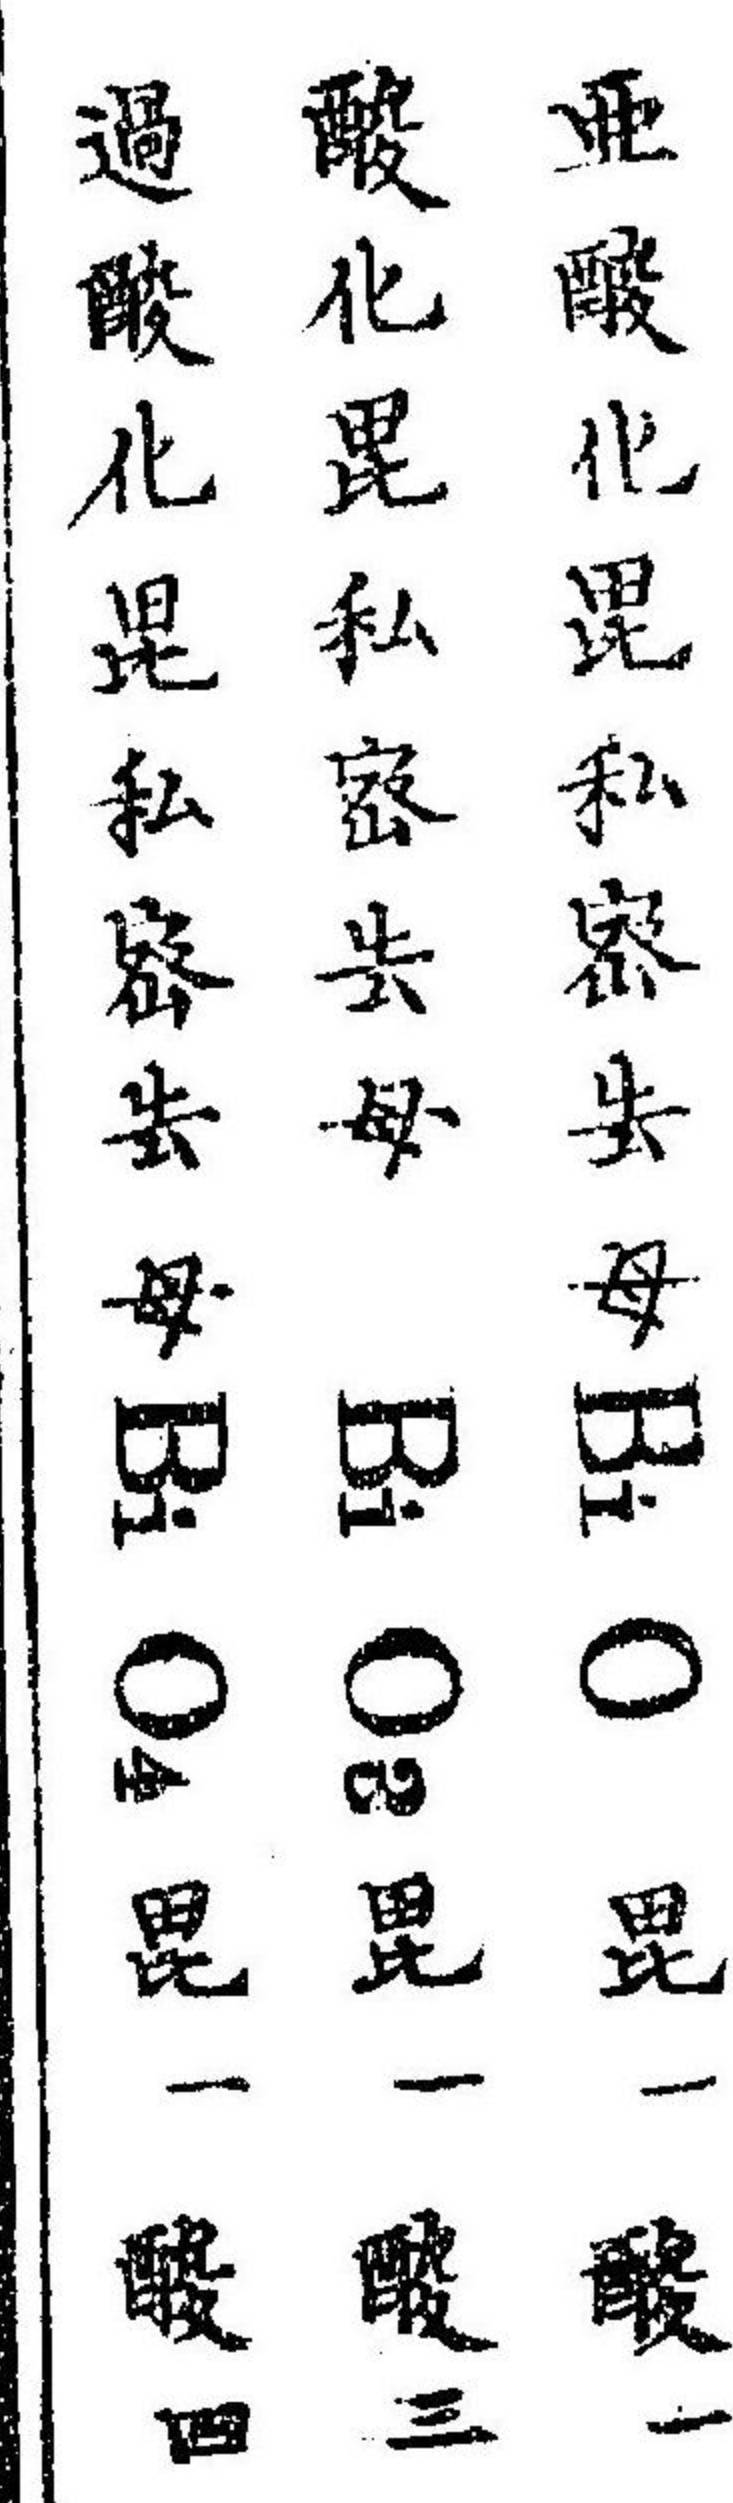 亜酸化毘私密去母 Bi O 毘一 酸一
酸化毘私密去母 Bi O3 毘一 酸三
過酸化毘私密去母 Bi O4 毘一 酸四